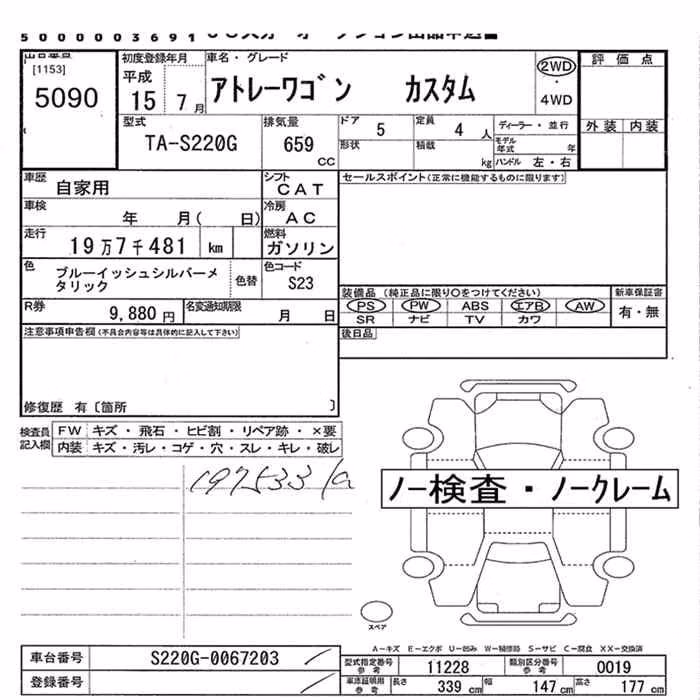 5000003691
[1153]
5090
初度登録年月
平成
15 7月
車名・グレード
アトレーワゴン カスタム
2WD
・
4WD
評価点
外装 内装
型式
TA-S220G
排気量
659
cc
ドア 5
定員 4 人
ディーラー・並行
形状
積載 kg
モデル年式 年
ハンドル 左・右
車歴
自家用
シフト
CAT
セールスポイント(正常に機能するものに限ります)
車検
年 月( 日)
冷房
AC
走行
19万7千481 km
燃料
ガソリン
色
ブルーイッシュシルバーメタリック
色替
色コード
S23
R券
9,880 円
名変通知期限
月 日
装備品(純正品に限り○をつけてください)
PS PW ABS エアB AW
SR ナビ TV カワ
新車保証書
有・無
後日品
注意事項申告欄(不具合内容等は具体的に記入して下さい)
修復歴 有〔箇所 〕
検査員記入欄
FW キズ・飛石・ヒビ割・リペア跡・×要
内装 キズ・汚レ・コゲ・穴・スレ・キレ・破レ
197533
ノー検査・ノークレーム
スペア
A-キズ E-エクボ U-凹み W-補修跡 S-サビ C-腐食 XX-交換済
車台番号
S220G-0067203
登録番号
型式指定番号 参考
11228
類別区分番号 参考
0019
車庫証明用 参考
長さ 339 cm
幅 147 cm
高さ 177 cm